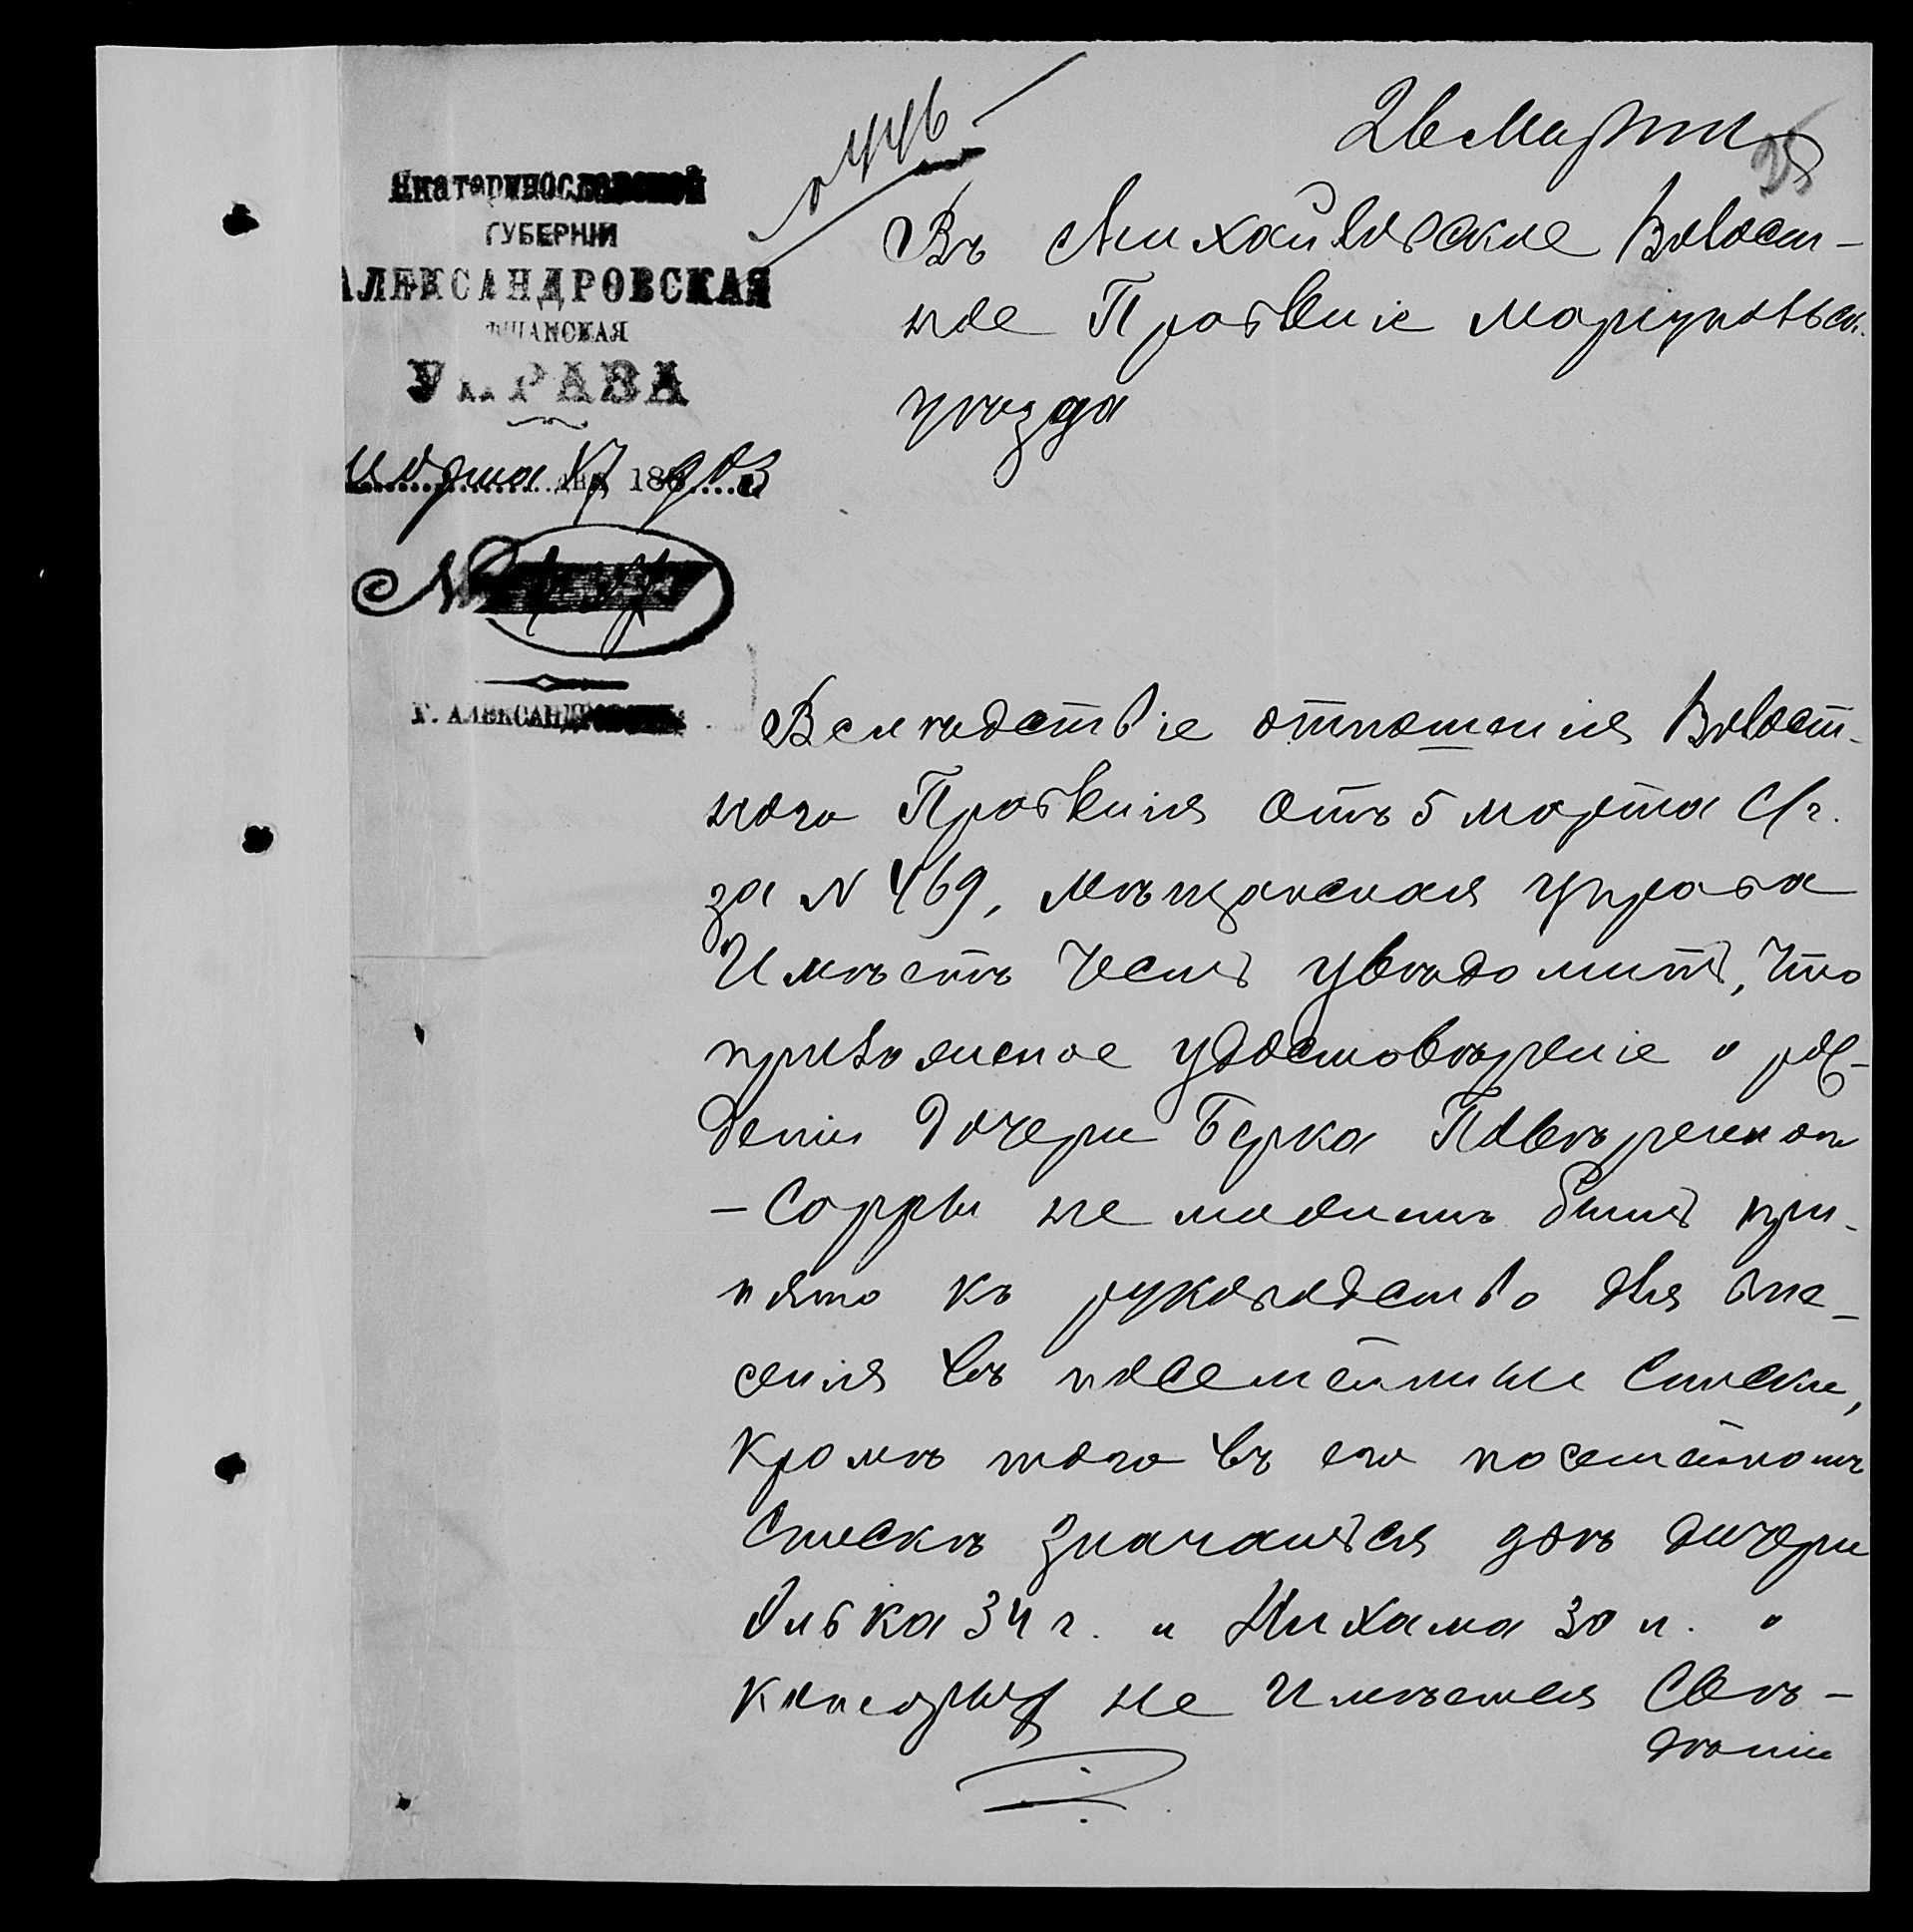 26 Марта
Екатеринославской
ГУБЕРНІИ
АЛЕКСАНДРОВСКАЯ
МѢЩАНСКАЯ
УПРАВА
Марта 17 дня 1903
№
Г. АЛЕКСАНДРОВСКЪ
Въ Михайловское Волост-
ное Правленіе Маріупольск.
уѣзда
Вслѣдствіе отношенія Волост-
ного Правленія отъ 5 марта с/г.
за N 469, мѣщанская управа
Имѣетъ честь увѣдомить, что
приложеное удостовѣреніе о рож-
деніи дочери Берка Повѣреннаго
– Сорры не можетъ быть при-
нято къ руководство для вне-
сенія въ посемейные списки,
Кромѣ того въ его посемейномъ
спискѣ значаться двѣ дочери
Элька 34 г. и Нихама 30 л. о
которыхъ не имѣется свѣ-
дѣній